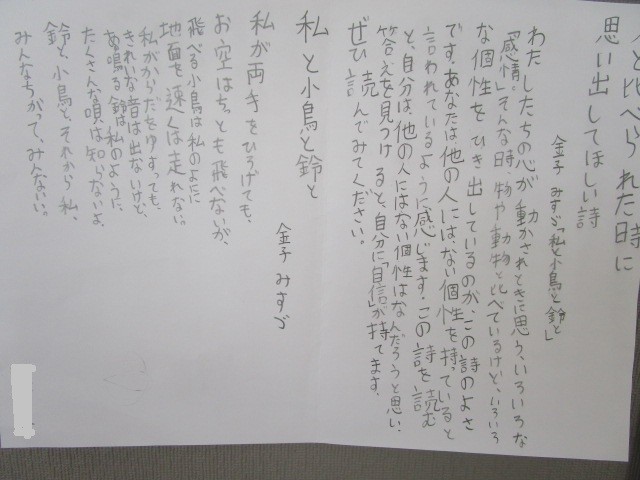 人と比べられた時に
思い出してほしい詩
金子 みすゞ「私と小鳥と鈴と」
わたしたちの心が動かされときに思う、いろいろな
「感情」。そんな時、物や動物と比べているけど、いろいろ
な個性をひき出しているのが、この詩のよさ
です。あなたは他の人には、ない個性を持っていると
言われているように感じます。この詩を読む
と、自分は、他の人にはない個性はなんだろうと思い、
答えを見つけると、自分に「自信」が持てます。
ぜひ読んでみてください。
私と小鳥と鈴と
金子 みすゞ
私が両手をひろげても、
お空はちっとも飛べないが、
飛べる小鳥は私のように
地面を速くは走れない。
私がからだをゆすっても、
きれいな音は出ないけど、
あの鳴る鈴は私のように、
たくさんな唄は知らないよ。
鈴と、小鳥と、それから私、
みんなちがって、みんないい。